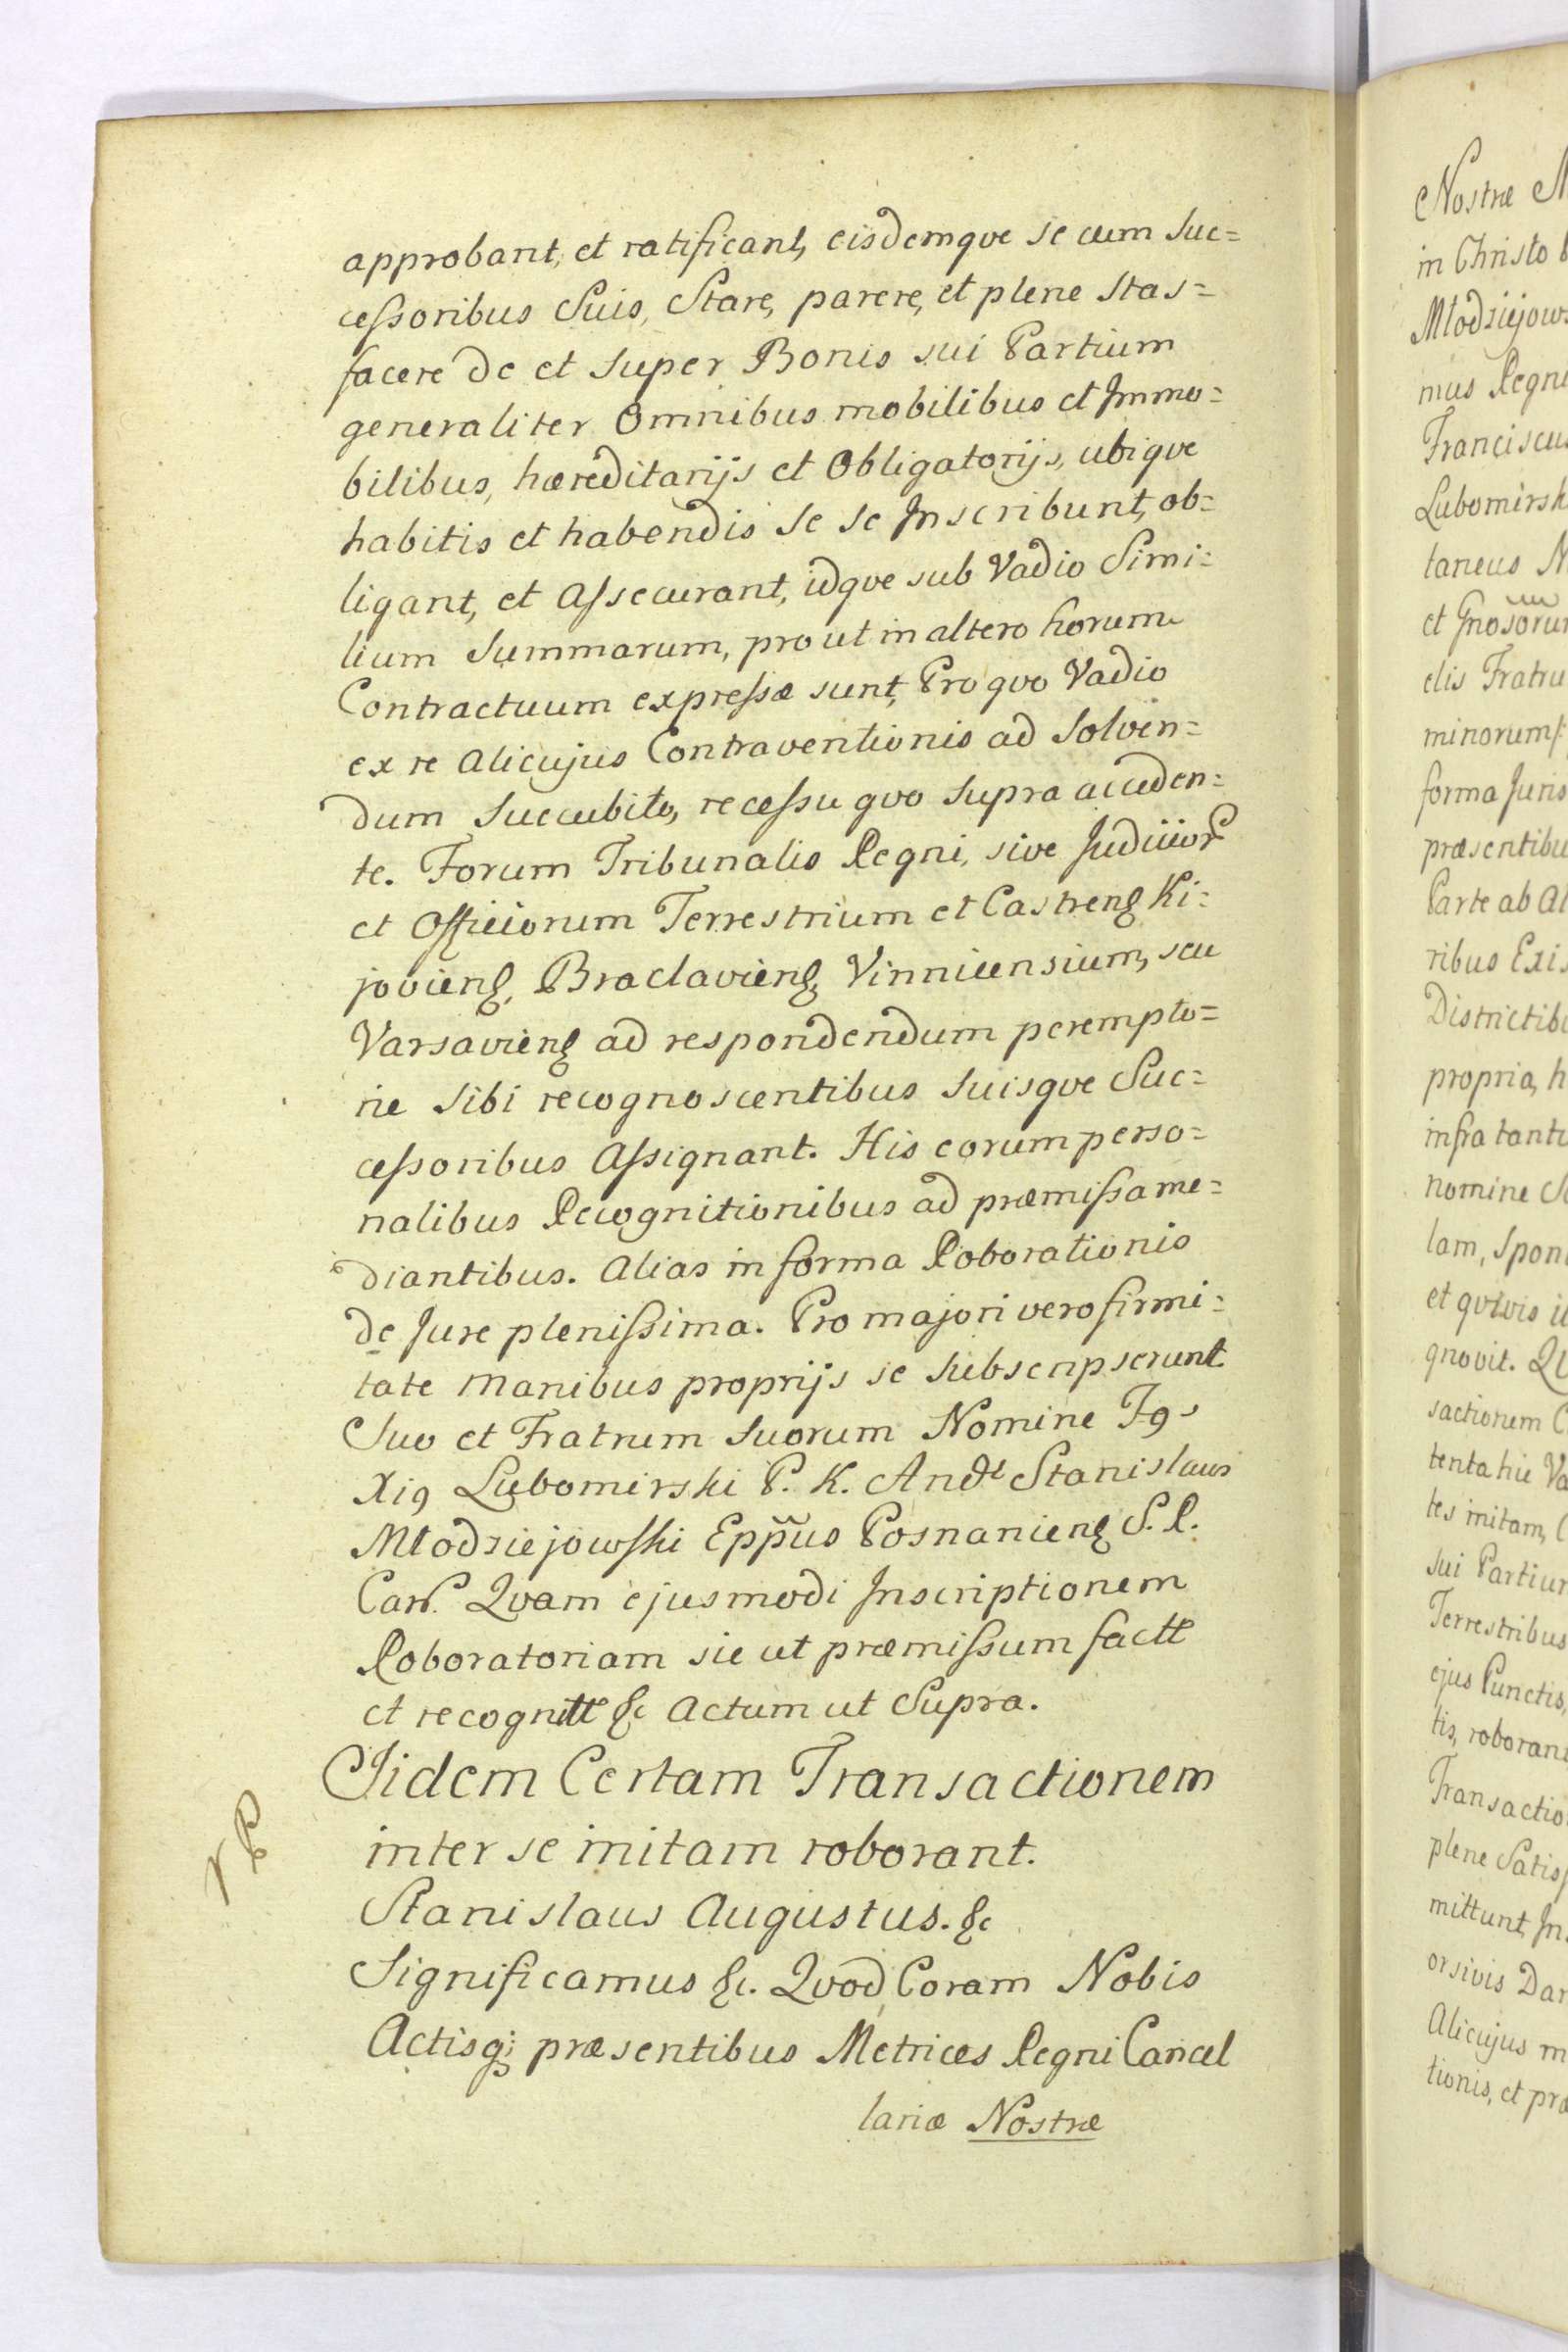 approbant, et ratificant, eisdemque se cum Suc=
cessoribus Suis, Stare, parere, et plene Stas=
facere de et Super Bonis sui Partium
generaliter Omnibus mobilibus et Immo=
bilibus, hæreditarijs et Obligatorijs, ubique
habitis et habendis se se Inscribunt, ob=
ligant, et Assecurant, idque sub Vadio Simi=
lium Summarum, prout in altero horum
Contractuum expressæ sunt, Pro quo Vadio
ex re Alicujus Contraventionis ad Solven=
dum Succubito, recessu quo Supra acceden=
te. Forum Tribunalis Regni, sive Judicior
et Officiorum Terrestrium et Castren Ki=
jovien, Braclavien, Vinnicensium, seu
Varsavien ad respondendum perempto=
rie Sibi recognoscentibus Suisque Suc=
cessoribus Assignant. His eorum perso=
nalibus Recognitionibus ad præmissa me=
diantibus. Alias in forma Roborationis
de Jure plenissima. Pro majori vero firmi=
tate Manibus proprijs se Subscripserunt
Suo et Fratrum Suorum Nomine
Xi9 Lubomirski P. K. And Stanislaus
Młodziejowski Eppus Posnanien S. R.
Can. Quam ejusmodi Inscriptionem
Roboratoriam sic ut præmissum factt
et recognitt &c Actum ut Supra.
Iidem Certam Transactionem
inter se initam roborant.
Stanislaus Augustus. &c
Significamus &c. Quod Coram Nobis
Actisq; præsentibus Metrices Regni Cancel
lariæ Nostræ
Nostræ
in Christo
Młodziejows
mus Regni
Franciscus
Lubomirsk
taneus
et Gnosorum
elis Fratru
minorum
forma Juris
præsentibu
Parte ab Al
ribus Exis
Districtibu
propria, h
infra tantu
nomine
lam, Spon
et quivis
gnovit.
sactionem
tenta hic Va
tes initam,
sui Partium
Terrestribus
ejus Punctis,
tis, roborant
Transactio
plene Satis
mittunt, In
orsivis Dar
Alicujus
tionis, et præ